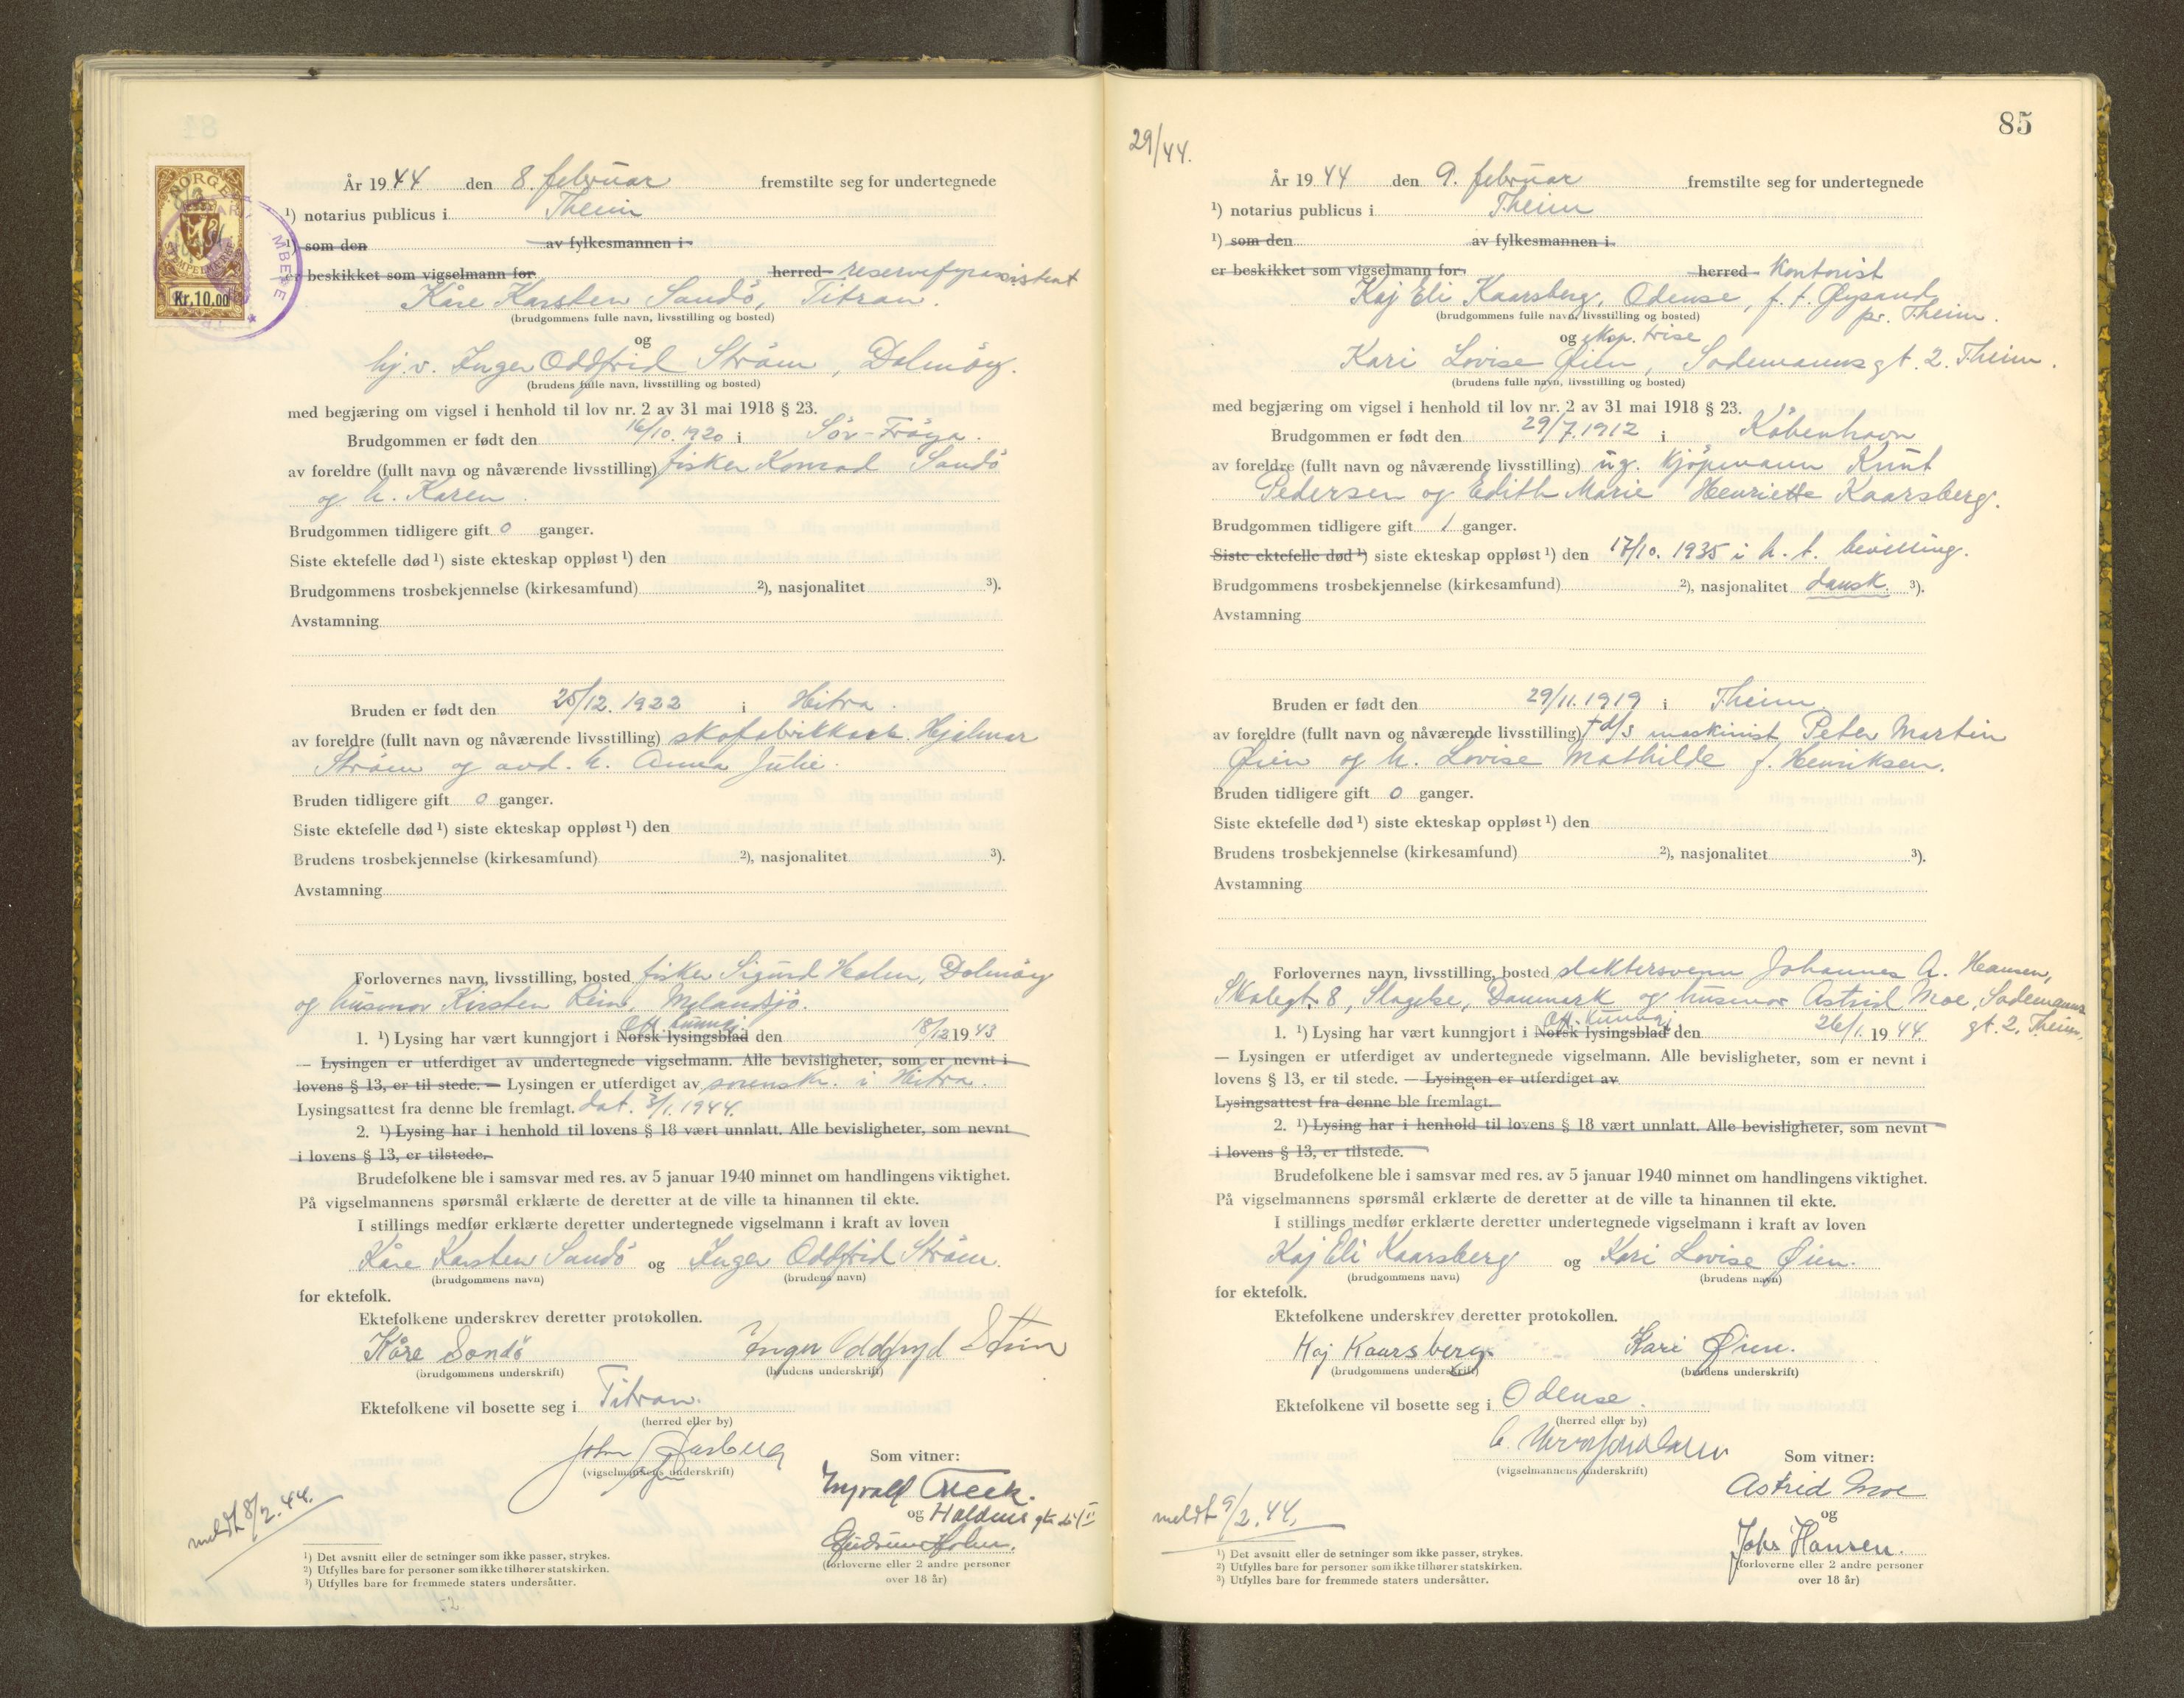 NORGE
STEMPELMERKE
Kr.10.00
År 1944 den 8. februar fremstilte seg for undertegnede
¹) notarius publicus i Theim
¹) som den av fylkesmannen i
er beskikket som vigselmann for herred reservefyrassistent
Kåre Karsten Sandö, Titran.
(brudgommens fulle navn, livsstilling og bosted)
og
hj.v. Inger Oddfrid Ström, Dolmöy.
(brudens fulle navn, livsstilling og bosted)
med begjæring om vigsel i henhold til lov nr. 2 av 31 mai 1918 § 23.
Brudgommen er født den 16/10. 1920 i Sör-Fröya.
av foreldre (fullt navn og nåværende livsstilling) fisker Konrad Sandö
og h. Karen.
Brudgommen tidligere gift 0 ganger.
Siste ektefelle død ¹) siste ekteskap oppløst ¹) den
Brudgommens trosbekjennelse (kirkesamfund) ²), nasjonalitet ³).
Avstamning
Bruden er født den 25/12. 1922 i Hitra.
av foreldre (fullt navn og nåværende livsstilling) skofabrikkarb. Hjalmar
Ström og avd. h. Anna Julie.
Bruden tidligere gift 0 ganger.
Siste ektefelle død ¹) siste ekteskap oppløst ¹) den
Brudens trosbekjennelse (kirkesamfund) ²), nasjonalitet ³).
Avstamning
Forlovernes navn, livsstilling, bosted fisker Sigurd Holm, Dolmöy
og husmor Kirsten Reim, Melandsjö.
Off. kunngj.
1. ¹) Lysing har vært kunngjort i Norsk lysingsblad den 18/12 1943
— Lysingen er utferdiget av undertegnede vigselmann. Alle bevisligheter, som er nevnt i
lovens § 13, er til stede. — Lysingen er utferdiget av sorenskr. i Hitra.
Lysingsattest fra denne ble fremlagt. dat. 3/1. 1944.
2. ¹) Lysing har i henhold til lovens § 18 vært unnlatt. Alle bevisligheter, som nevnt
i lovens § 13, er tilstede.
Brudefolkene ble i samsvar med res. av 5 januar 1940 minnet om handlingens viktighet.
På vigselmannens spørsmål erklærte de deretter at de ville ta hinannen til ekte.
I stillings medfør erklærte deretter undertegnede vigselmann i kraft av loven
Kåre Karsten Sandö og Inger Oddfrid Ström.
(brudgommens navn) (brudens navn)
for ektefolk.
Ektefolkene underskrev deretter protokollen.
Kåre Sandö Inger Oddfryd Strøm
(brudgommens underskrift) (brudens underskrift)
Ektefolkene vil bosette seg i Titran.
(herred eller by)
John Aasberg
(vigselmannens underskrift)
Som vitner:
og
Gudrun Holm.
(forloverne eller 2 andre personer
over 18 år)
meldt 8/2. 44.
¹) Det avsnitt eller de setninger som ikke passer, strykes.
²) Utfylles bare for personer som ikke tilhører statskirken.
³) Utfylles bare for fremmede staters undersåtter.
85
29/44.
År 1944 den 9. februar fremstilte seg for undertegnede
¹) notarius publicus i Theim
¹) som den av fylkesmannen i
er beskikket som vigselmann for herred Kontorist
Kaj Eli Kaarsberg, Odense, f. t. Øysand
pr. Theim.
(brudgommens fulle navn, livsstilling og bosted)
og eksp. trise
Kari Lovise Øien, Sodemannsgt. 2. Theim.
(brudens fulle navn, livsstilling og bosted)
med begjæring om vigsel i henhold til lov nr. 2 av 31 mai 1918 § 23.
Brudgommen er født den 29/7. 1912 i Köbenhavn
av foreldre (fullt navn og nåværende livsstilling) ug. kjöpmann Knut
Pedersen og Edith Marie Henriette Kaarsberg.
Brudgommen tidligere gift 1 ganger.
Siste ektefelle død ¹) siste ekteskap oppløst ¹) den 17/10. 1935 i h. t. bevilling.
Brudgommens trosbekjennelse (kirkesamfund) ²), nasjonalitet dansk. ³).
Avstamning
Bruden er født den 29/11. 1919 i Theim.
av foreldre (fullt navn og nåværende livsstilling) † d/s maskinist Peter Martin
Øien og h. Lovise Mathilde f. Henriksen.
Bruden tidligere gift 0 ganger.
Siste ektefelle død ¹) siste ekteskap oppløst ¹) den
Brudens trosbekjennelse (kirkesamfund) ²), nasjonalitet ³).
Avstamning
Forlovernes navn, livsstilling, bosted slaktersvenn Johannes A. Hansen,
Skolegt. 8, Slagelse, Danmark og husmor Astrid Moe, Sodemanns
gt. 2, Theim.
Off. kunngj.
1. ¹) Lysing har vært kunngjort i Norsk lysingsblad den 26/1. 1944.
— Lysingen er utferdiget av undertegnede vigselmann. Alle bevisligheter, som er nevnt i
lovens § 13, er til stede. — Lysingen er utferdiget av
Lysingsattest fra denne ble fremlagt.
2. ¹) Lysing har i henhold til lovens § 18 vært unnlatt. Alle bevisligheter, som nevnt
i lovens § 13, er tilstede.
Brudefolkene ble i samsvar med res. av 5 januar 1940 minnet om handlingens viktighet.
På vigselmannens spørsmål erklærte de deretter at de ville ta hinannen til ekte.
I stillings medfør erklærte deretter undertegnede vigselmann i kraft av loven
Kaj Eli Kaarsberg og Kari Lovise Øien.
(brudgommens navn) (brudens navn)
for ektefolk.
Ektefolkene underskrev deretter protokollen.
Kaj Kaarsberg. Kari Øien.
(brudgommens underskrift) (brudens underskrift)
Ektefolkene vil bosette seg i Odense.
(herred eller by)
(vigselmannens underskrift)
Som vitner:
Astrid Moe
og
Johs Hansen.
(forloverne eller 2 andre personer
over 18 år)
meldt 9/2. 44.
¹) Det avsnitt eller de setninger som ikke passer, strykes.
²) Utfylles bare for personer som ikke tilhører statskirken.
³) Utfylles bare for fremmede staters undersåtter.